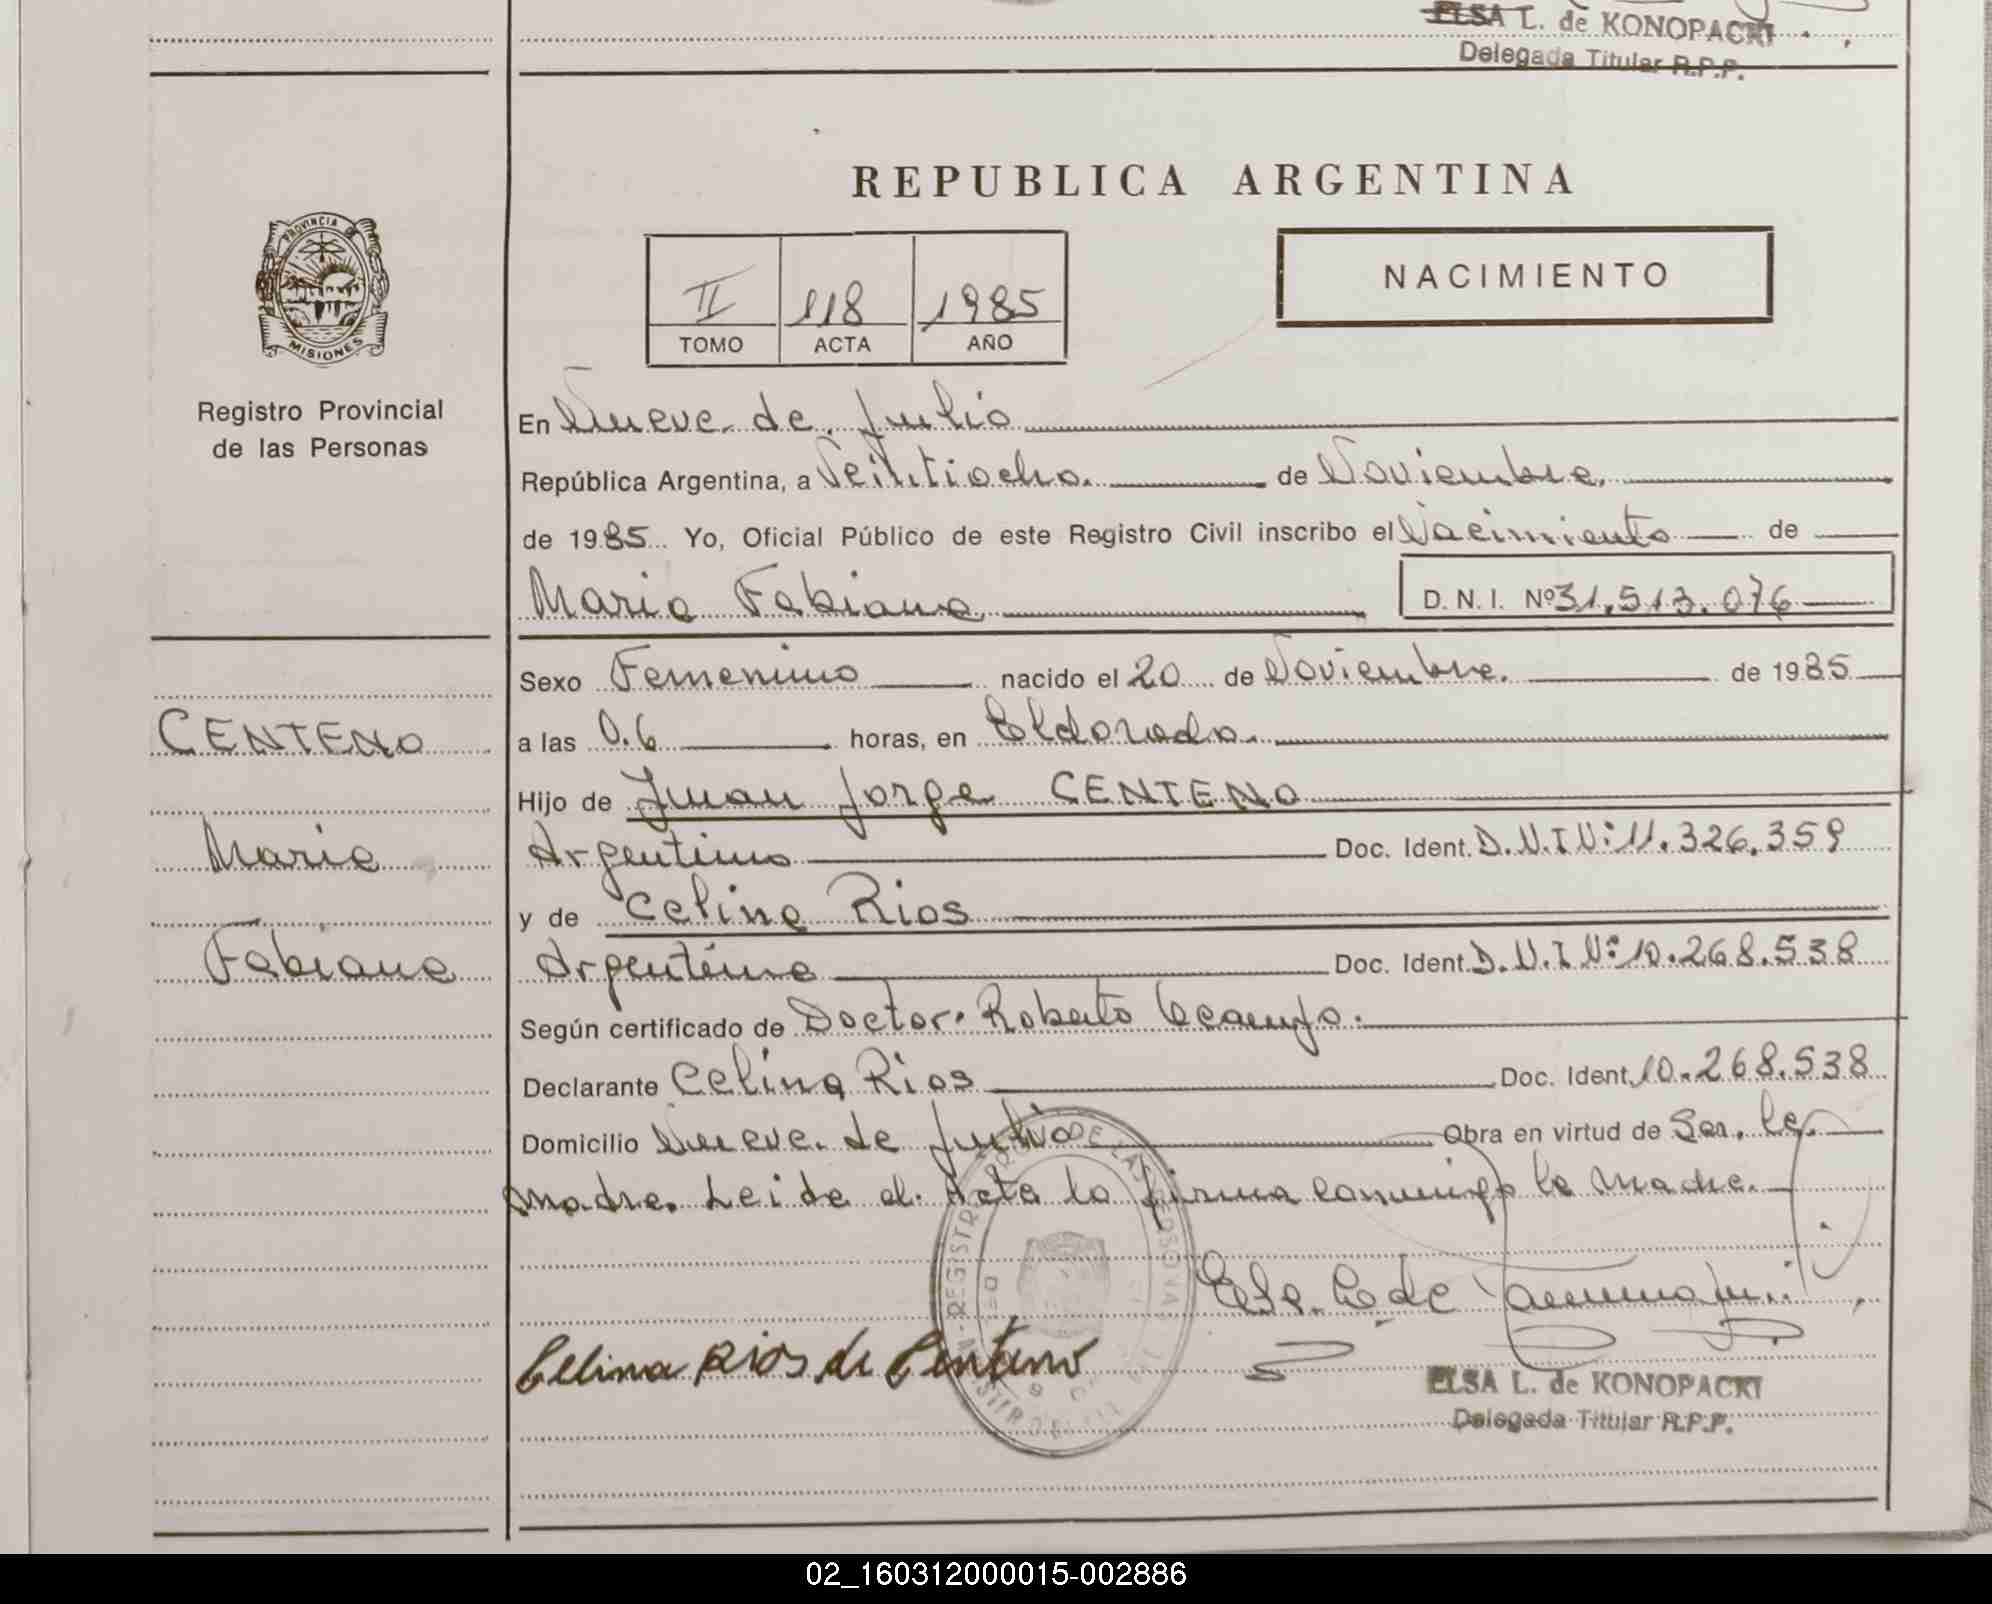 ELSA L. de KONOPACKI
Delegada Titular R.P.P.
REPUBLICA ARGENTINA
PROVINCIA DE
MISIONES
Registro Provincial
de las Personas
II 118 1985
TOMO ACTA AÑO
NACIMIENTO
En Nueve de Julio
República Argentina, a Veintiocho. de Noviembre.
de 1985 Yo, Oficial Público de este Registro Civil inscribo el Nacimiento de
Maria Fabiana D. N. I. Nº 31.513.076
Sexo Femenino nacido el 20 de Noviembre. de 1985
CENTENO
a las 0.6 horas, en Eldorado.
Hijo de Juan Jorge CENTENO
Maria
Argentino Doc. Ident. D.N.I N: 11.326.359
y de Celina Rios
Fabiana
Argentina Doc. Ident. D.N.I N: 10.268.538
Según certificado de Doctor. Roberto Ocampo.
Declarante Celina Rios Doc. Ident. 10.268.538
Domicilio Nueve de Julio Obra en virtud de Ser. la
madre. Leida el Acta la firma conmigo la madre.
Celina Rios de Centeno
ELSA L. de KONOPACKI
Delegada Titular R.P.P.
02_160312000015-002886